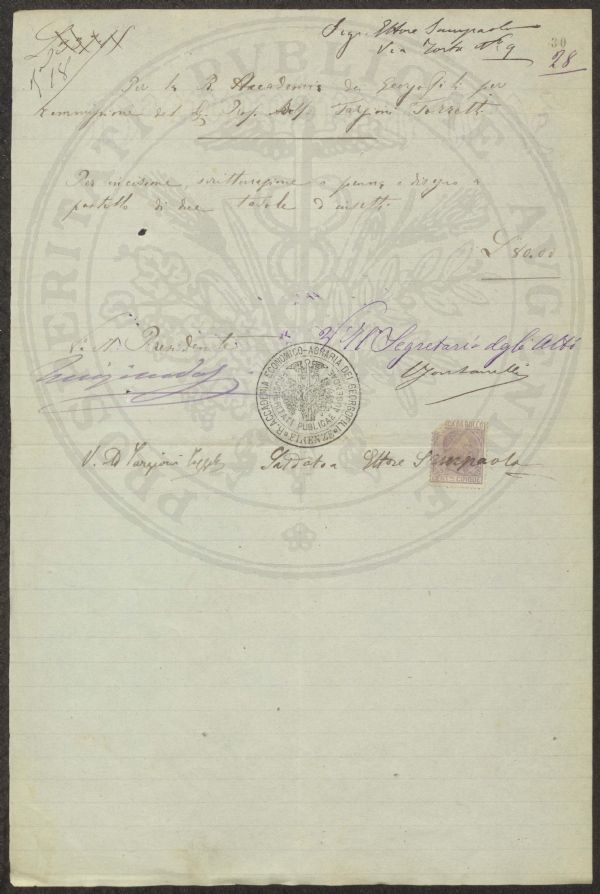 Ettore Sampaolo
Via Torta N. 9
30
28
Per la R. Accademia dei Georgofili per
commissione del Sig. Prof. Ad. Targioni Tozzetti
Per incisione, scritturazione a penna e disegno a
pastello di due tavole d'insetti
L 80.00
V. Il Presidente
Il Segretario degli Atti
R. ACCADEMIA ECONOMICO-AGRARIA DEI GEORGOFILI
PROSPERITATI PUBLICAE AUGENDAE
FIRENZE
V. Ad Targioni Tozzetti Saldato Ettore Sampaolo
CINQUE
PROSPERITATI PUBLICAE AUGENDAE